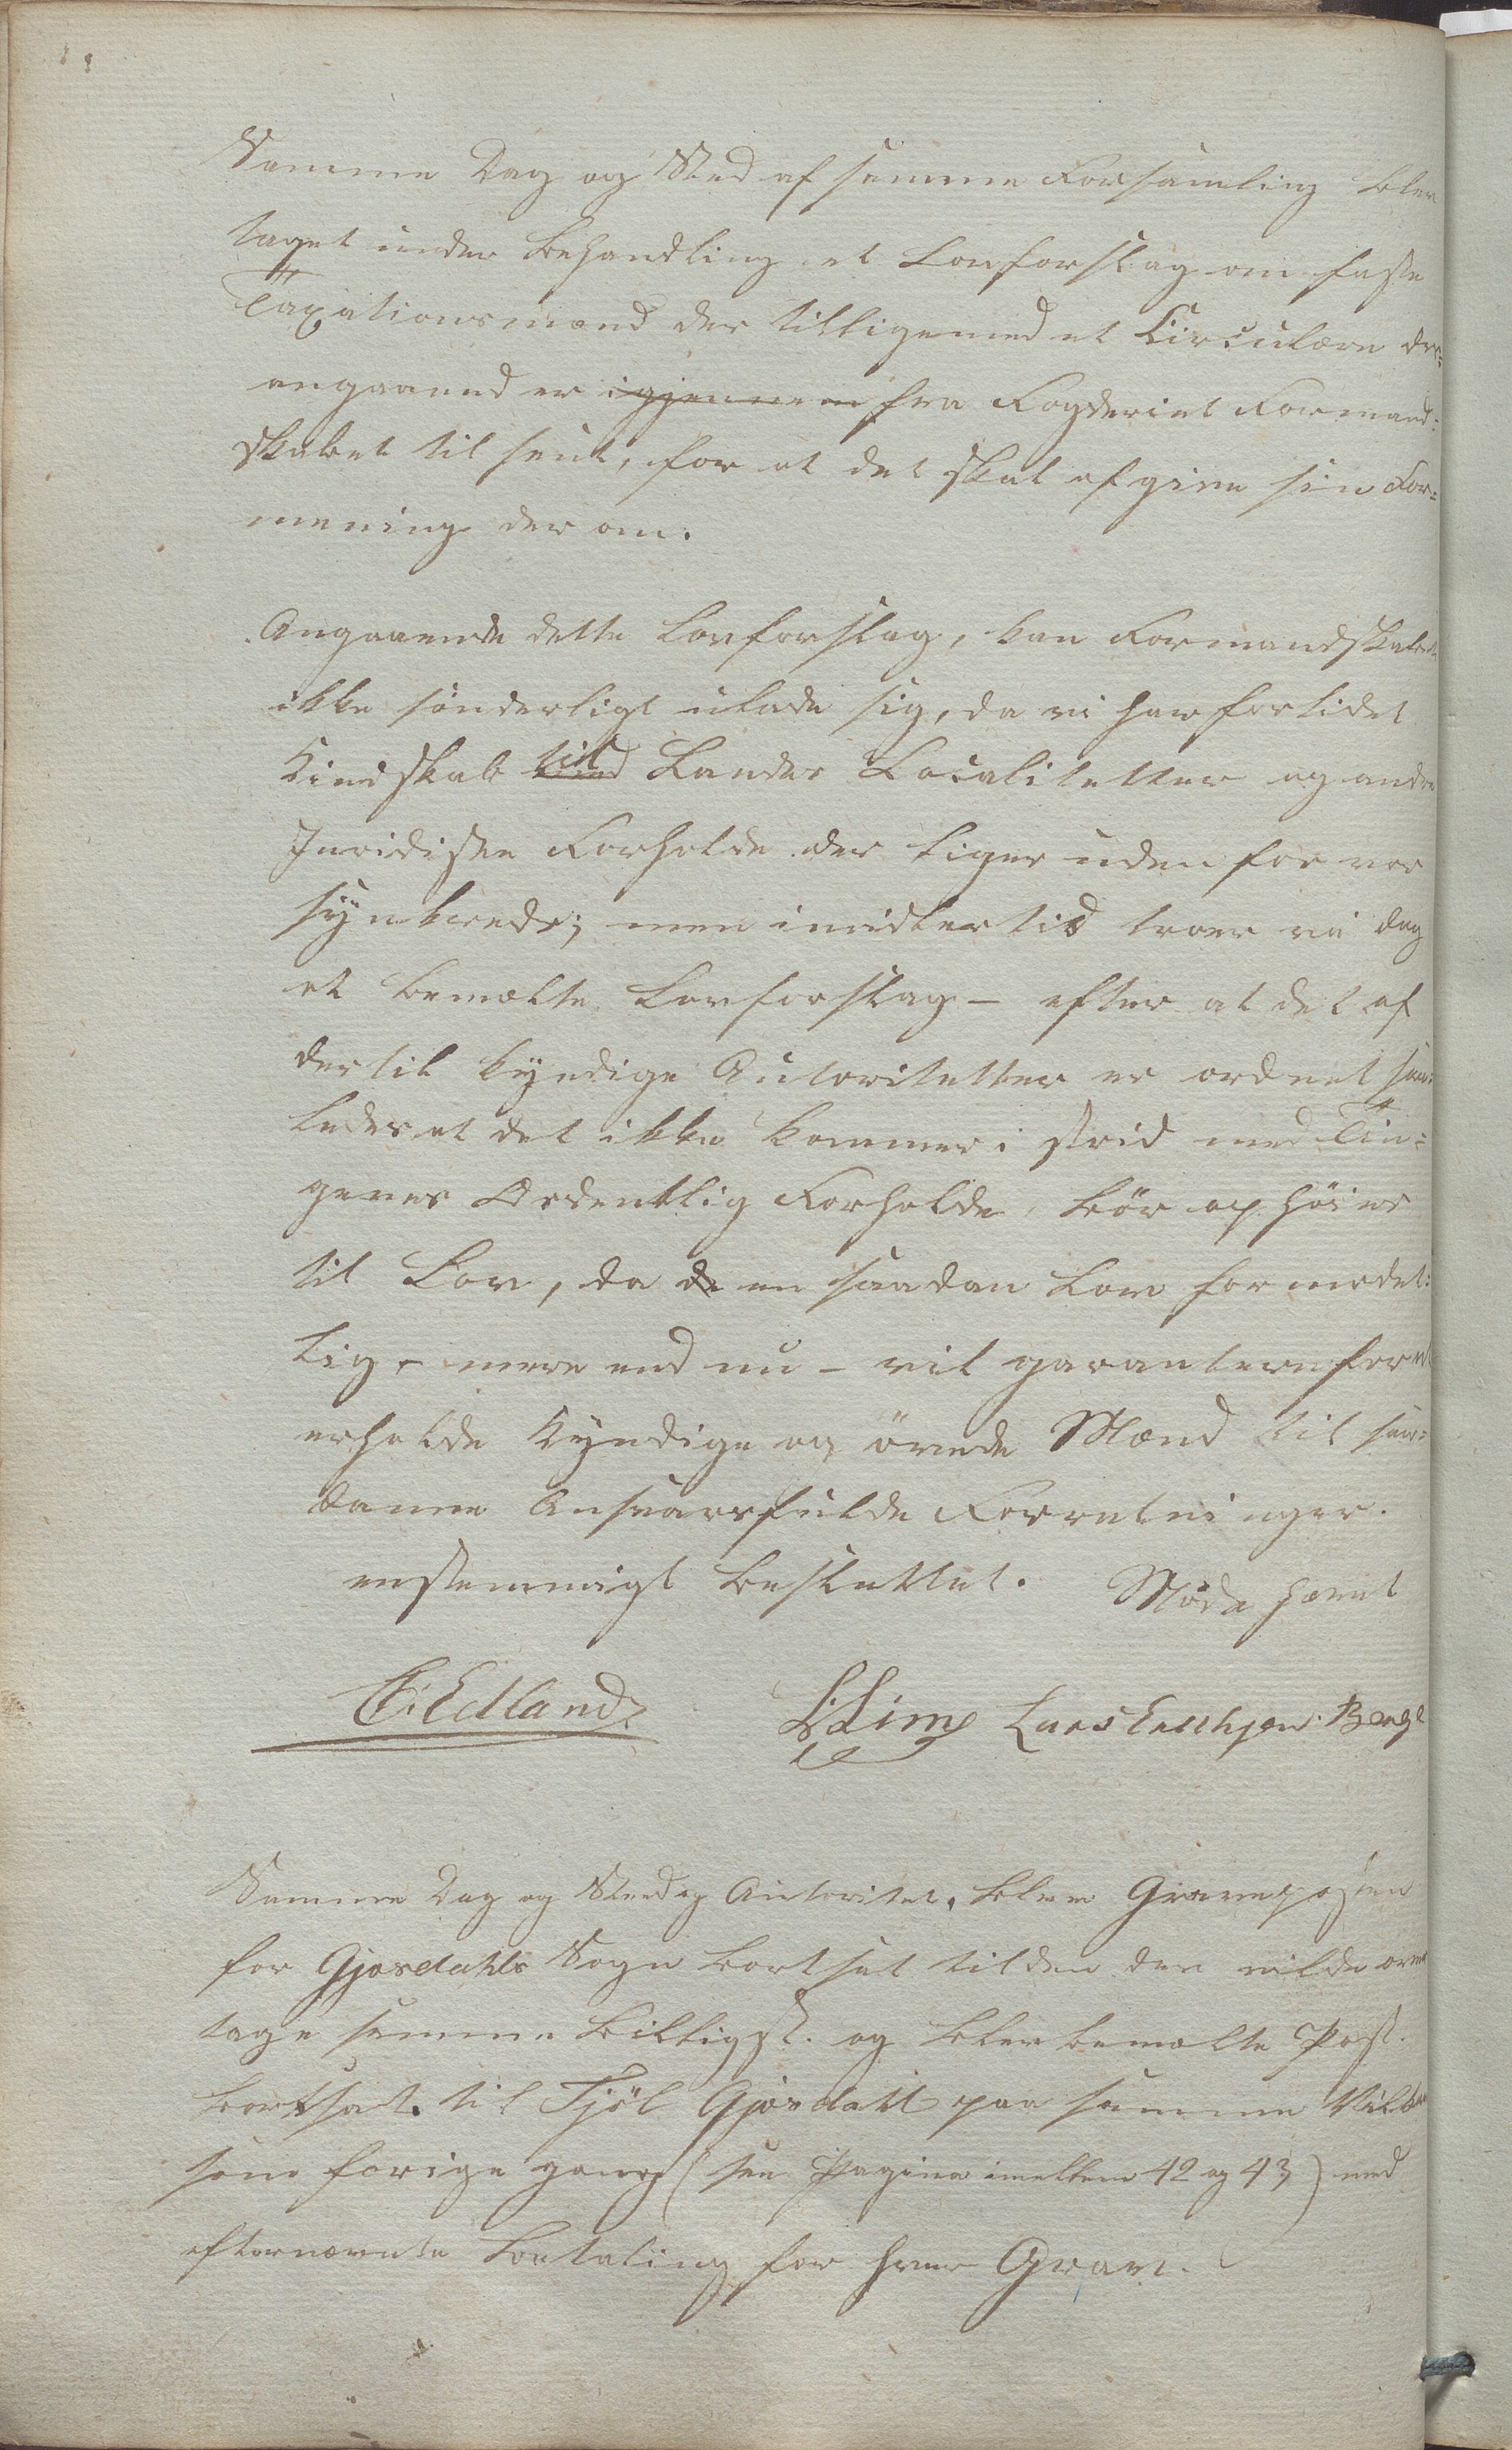 Samme Dag og Sted af samme Forsamling blev
taget under Behandling et Lovforslag om faste
Taxationsmænd der tilligemed et Circulære der=
angaaend er igjennem fra Fogderiet Formand=
skabet til sent, for at det skal afgive sin For=
mening der om.
Angaaende dette Lovforslag, kan Formandskabet
ikke sønderligt utlade sig, da vi har forlidet
Kindskab til Landes Localitetter og andre
Juridiske Forholde der liger uden for vor
synkreds; men imidlertid troer vi dog
at bemælte Lovforslag – efter at det af
dertil kyndige Autoritetter er ordnet saa=
ledes at det ikke kommer i strid med Tin=
genes Ordentlig Forholde, bør op høies
til Lov, da de en saadan Lov formodet=
lig – mere end nu – vil garantere for at
erholde kyndige og øvede Mænd til saa=
danne Ansvarsfulde Forretninger.
enstemmigt besluttet. Møde hævet
E. Edland L Lima Lars Endresen Berge
Samme Dag og Sted og Autoritet, blev Graveposten
for Gjæsdahls Sogn bortsat til den der vilde over
tage samme billigst. og blev bemælte Post.
bortsat. til Tjöl Gjæsdahl paa samme Vilkor
som forige gang (see Pagina imellem 42 og 43) med
efternævnte Bætaling for hver Grav.